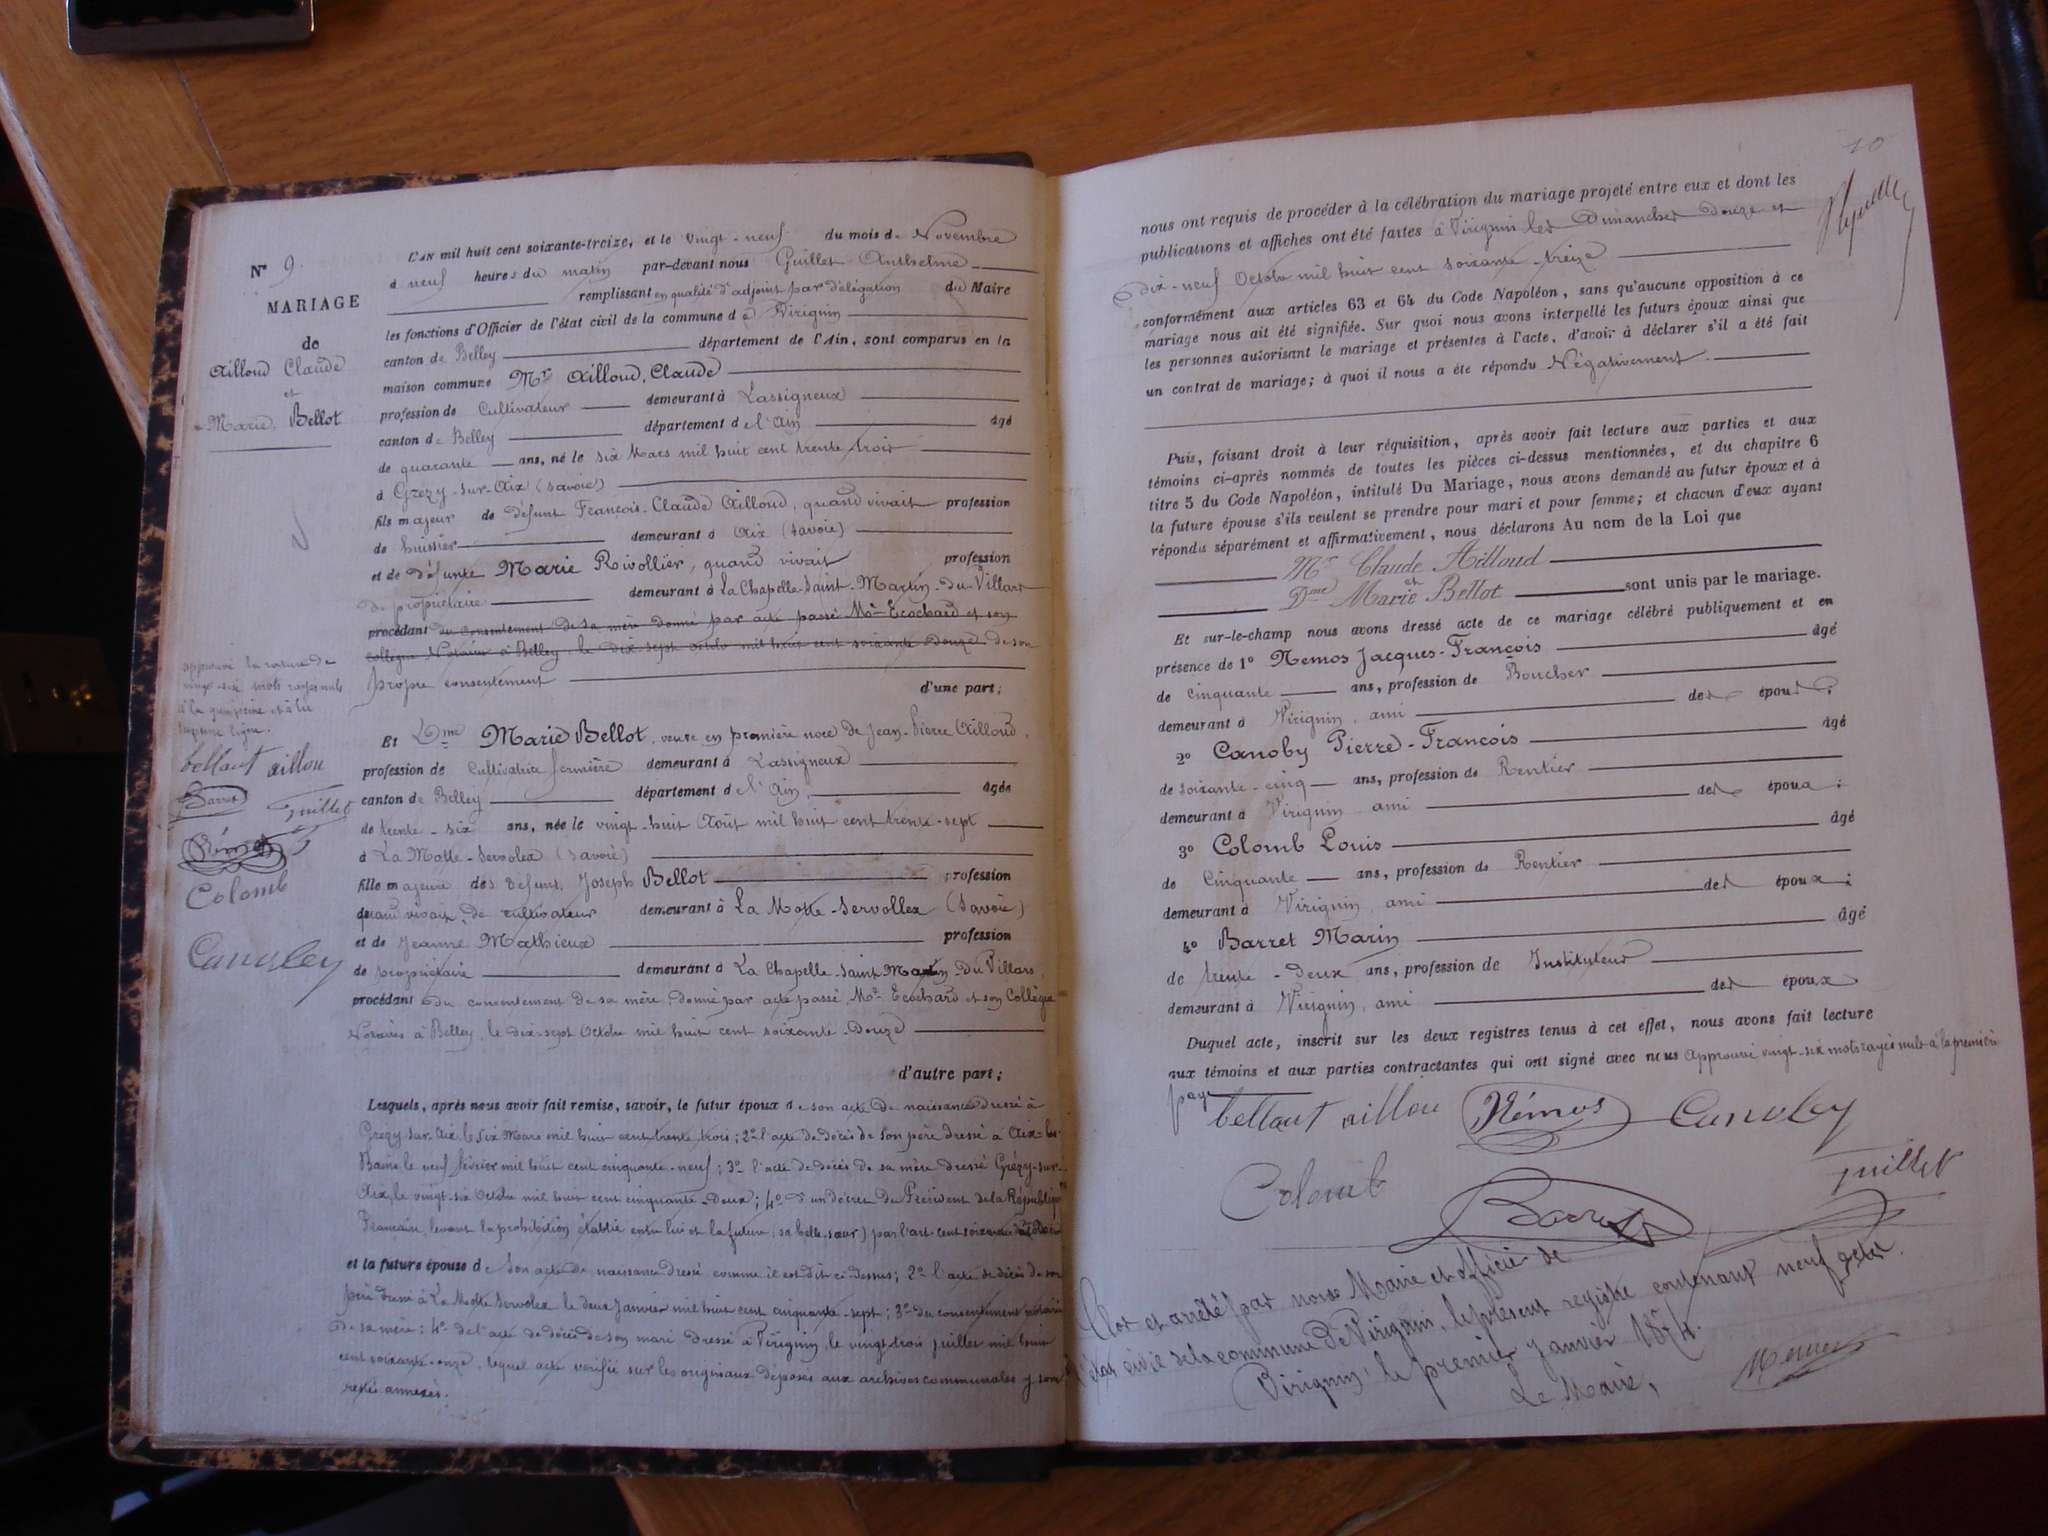 N° 9.
MARIAGE
de
Ailloud Claude
et
Marie Bellot
L'AN mil huit cent soixante-treize, et le vingt-neuf du mois de Novembre
à neuf heures du matin par-devant nous Guillet Anthelme
remplissant en qualité d'adjoint par délégation du Maire
les fonctions d'Officier de l'état civil de la commune de Virignin
canton de Belley département de l'Ain, sont comparus en la
maison commune Mr Ailloud, Claude
profession de Cultivateur demeurant à Lassigneux
canton de Belley département de l'Ain âgé
de quarante ans, né le six Mars mil huit cent trente trois
à Grezy-sur-Aix (Savoie)
fils majeur de défunt François-Claude Ailloud, quand vivait profession
de huissier demeurant à Aix (Savoie)
et de défunte Marie Rivollier, quand vivait profession
de propriétaire demeurant à La Chapelle-Saint-Martin-du-Villars
procédant du consentement de sa mère donné par acte passé Me Ecochard et son
collègue Notaires à Belley, le dix-sept octobre mil huit cent soixante douze de son
propre consentement
d'une part;
approuvé la rature de
vingt-six mots rayés nuls
à la quinzième et à la
ligne.
bellaut aillou
Barret Guillet
Némos
Colomb
Canoby
Et Dme Marie Bellot, veuve en première noce de Jean-Pierre Ailloud,
profession de Cultivatrice fermière demeurant à Lassigneux
canton de Belley département de l'Ain, âgée
de trente-six ans, née le vingt-huit Août mil huit cent trente-sept
à La Motte-Servolex (Savoie)
fille majeure des défunt, Joseph Bellot profession
quand vivait, de cultivateur demeurant à La Motte-Servollex (Savoie)
et de Jeanne Mathieux profession
de propriétaire demeurant à La Chapelle-Saint-Martin-du Villars,
procédant du consentement de sa mère, donné par acte passé, Me Ecochard et son Collègue
Notaires à Belley, le dix-sept Octobre mil huit cent soixante-Douze
d'autre part;
Lesquels, après nous avoir fait remise, savoir, le futur époux 1° de son acte de naissance dressé à
Grézy-sur-Aix le six Mars mil huit cent trente trois; 2° l'acte de décès de son père dressé à Aix-les-
Bains le neuf février mil huit cent cinquante-neuf; 3° l'acte de décès de sa mère dressé Grézy-sur-
Aix, le vingt-six Octobre mil huit cent cinquante-Deux; 4° d'un décret du Président de la République
Française, levant la prohibition établie entre lui et la future, (sa belle-sœur) par l'art. cent soixante deux du Code
et la future épouse de son acte de naissance dressé comme il est dit ci-dessus; 2° l'acte de décès de son
père dressé à La Motte Servolex le deux Janvier mil huit cent cinquante-sept; 3° du consentement notarié
de sa mère; 4° de l'acte de décès de son mari dressé à Virignin, le vingt-trois juillet mil huit
cent soixante-onze, lequel acte vérifié sur les originaux déposés aux archives communales y sont
restés annexés.
10
nous ont requis de procéder à la célébration du mariage projeté entre eux et dont les
publications et affiches ont été faites à Virignin les Dimanches douze et
dix-neuf Octobre mil huit cent soixante-treize
conformément aux articles 63 et 64 du Code Napoléon, sans qu'aucune opposition à ce
mariage nous ait été signifiée. Sur quoi nous avons interpellé les futurs époux ainsi que
les personnes autorisant le mariage et présentes à l'acte, d'avoir à déclarer s'il a été fait
un contrat de mariage; à quoi il nous a été répondu Négativement.
Puis, faisant droit à leur réquisition, après avoir fait lecture aux parties et aux
témoins ci-après nommés de toutes les pièces ci-dessus mentionnées, et du chapitre 6
titre 5 du Code Napoléon, intitulé Du Mariage, nous avons demandé au futur époux et à
la future épouse s'ils veulent se prendre pour mari et pour femme; et chacun d'eux ayant
répondu séparément et affirmativement, nous déclarons Au nom de la Loi que
Mr Claude Ailloud
et
Dme Marie Bellot sont unis par le mariage.
Et sur-le-champ nous avons dressé acte de ce mariage célébré publiquement et en
présence de 1° Nemos Jacques-François âgé
de cinquante ans, profession de Boucher
demeurant à Virignin, ami des époux;
2° Canoby Pierre-François âgé
de soixante-cinq ans, profession de Rentier
demeurant à Virignin ami des époux;
3° Colomb Louis âgé
de Cinquante ans, profession de Rentier
demeurant à Virignin, ami des époux;
4° Barret Marin âgé
de trente-deux ans, profession de Instituteur
demeurant à Virignin, ami des époux
Duquel acte, inscrit sur les deux registres tenus à cet effet, nous avons fait lecture
aux témoins et aux parties contractantes qui ont signé avec nous approuvé vingt-six mots rayés nuls à la première
page
bellaut aillou Némos Canoby
Colomb Barret Guillet
Clos et arrêté par nous Maire et officier de
l'état civil de la commune de Virignin, le présent registre contenant neuf actes.
Virignin, le premier Janvier 1874.
Le Maire,